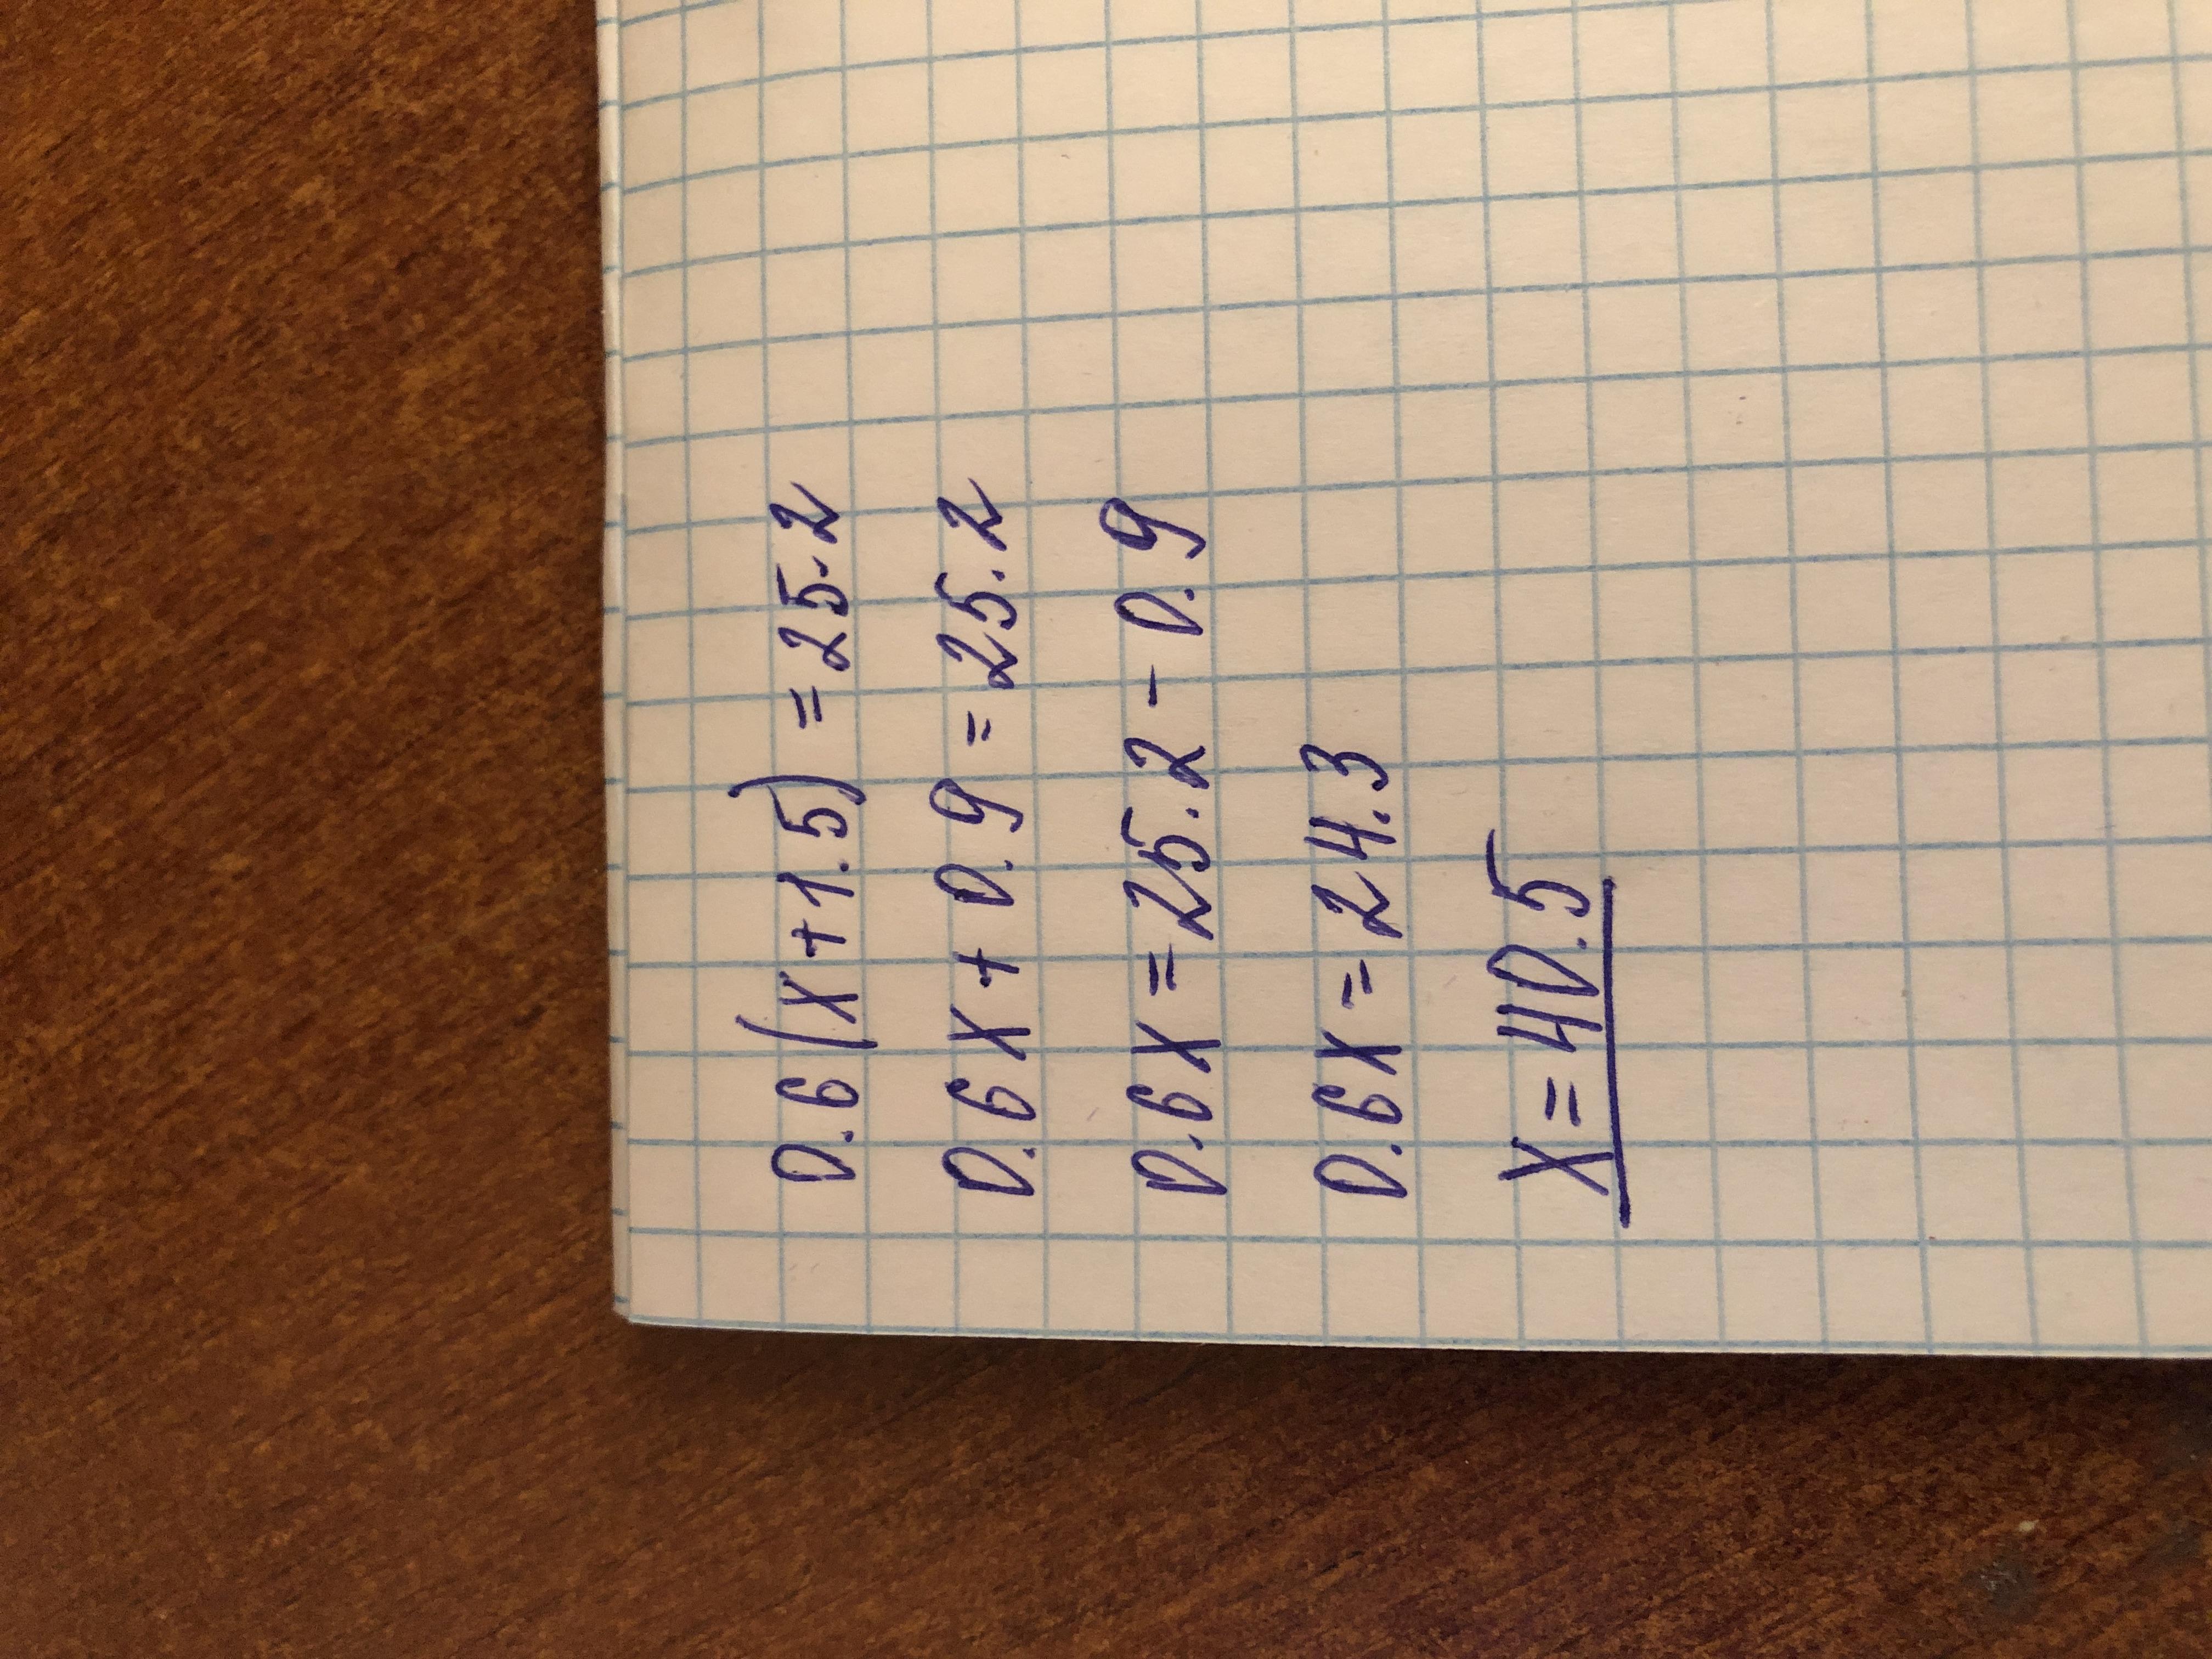 0.6(x+1.5) = 25.2
0.6x + 0.9 = 25.2
0.6x = 25.2 - 0.9
0.6x = 24.3
x = 40.5